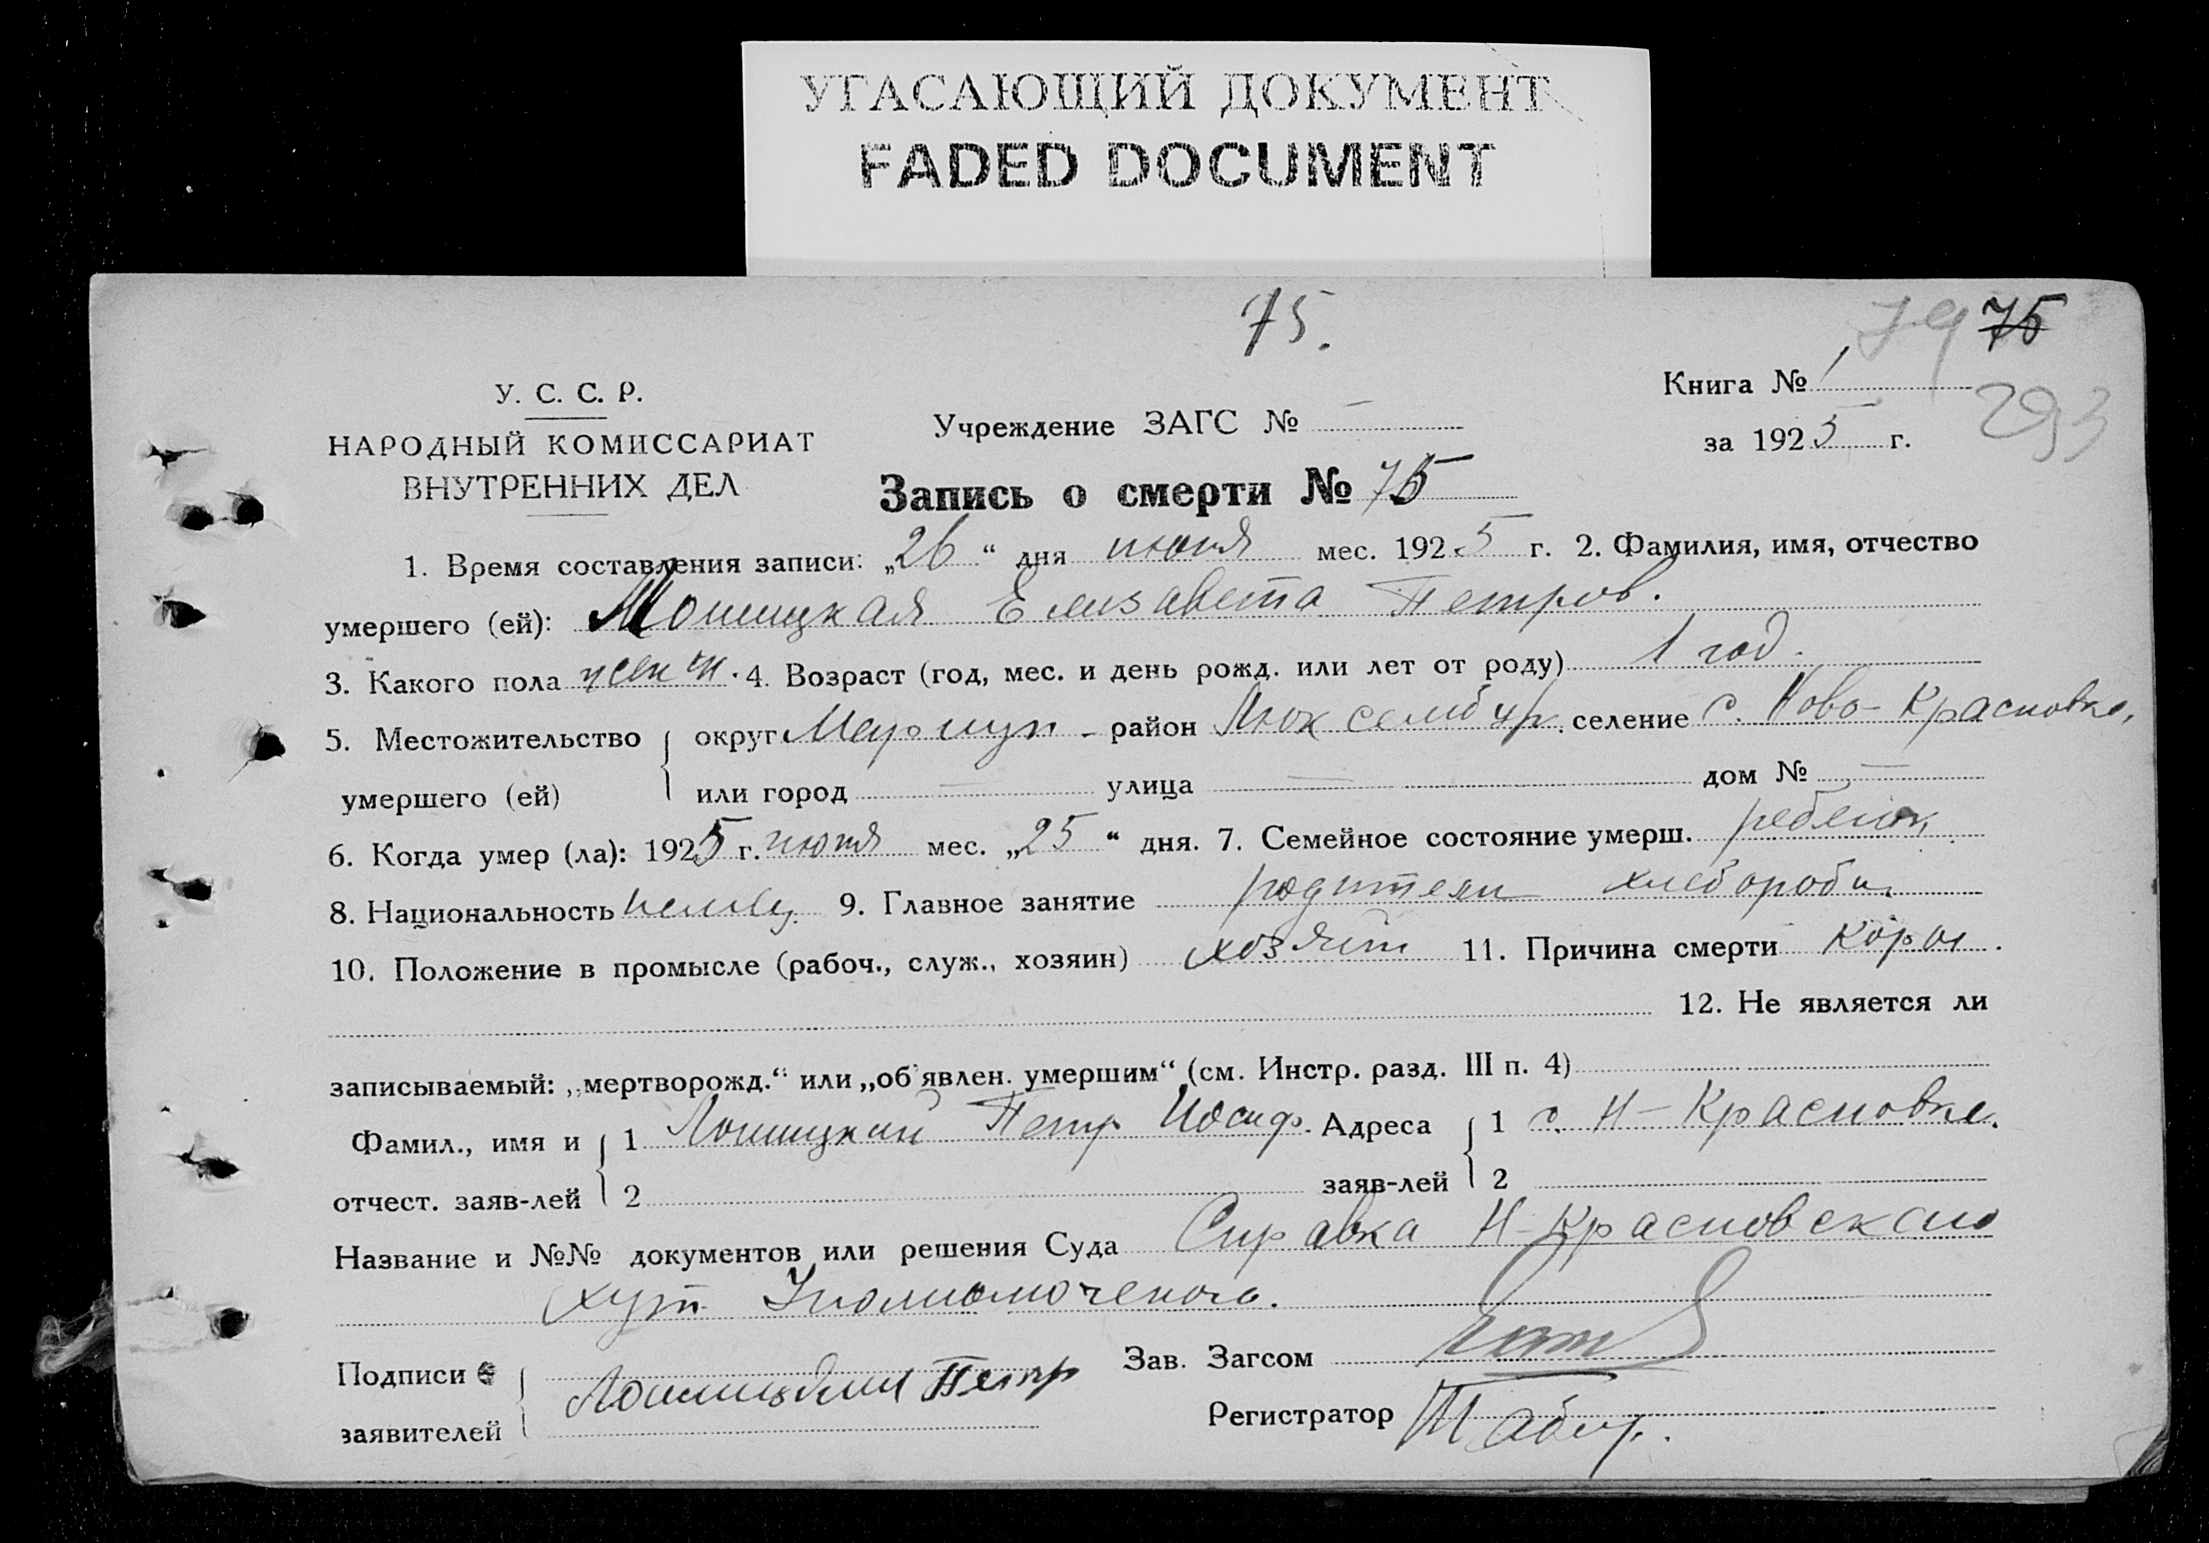 УГАСАЮЩИЙ ДОКУМЕНТ
FADED DOCUMENT
75.
79 75
293
У. С. С. Р.
НАРОДНЫЙ КОМИССАРИАТ
ВНУТРЕННИХ ДЕЛ
Учреждение ЗАГС № —
Книга № 1
за 1925 г.
Запись о смерти № 75
1. Время составления записи: „26“ дня июня мес. 1925 г. 2. Фамилия, имя, отчество
умершего (ей): Лошицкая Елизавета Петров.
3. Какого пола женск. 4. Возраст (год, мес. и день рожд. или лет от роду) 1 год.
5. Местожительство округ Мариуп - район Люксембур. селение с. Ново-Красновка,
умершего (ей) или город — улица — дом № —
6. Когда умер (ла): 1925 г. июня мес. „25“ дня. 7. Семейное состояние умерш. ребенок
8. Национальность немец. 9. Главное занятие родители хлебороби
10. Положение в промысле (рабоч., служ., хозяин) хозяин 11. Причина смерти Корь.
12. Не является ли
записываемый: „мертворожд.“ или „об'явлен. умершим“ (см. Инстр. разд. III п. 4)
Фамил., имя и 1 Лошицкий Петр Иосиф. Адреса 1 с. Н-Красновка.
отчест. заяв-лей 2 заяв-лей 2
Название и №№ документов или решения Суда Справка Н-Красновского
хут. Уполномоченого.
Подписи Лошицкий Петр Зав. Загсом
заявителей Регистратор